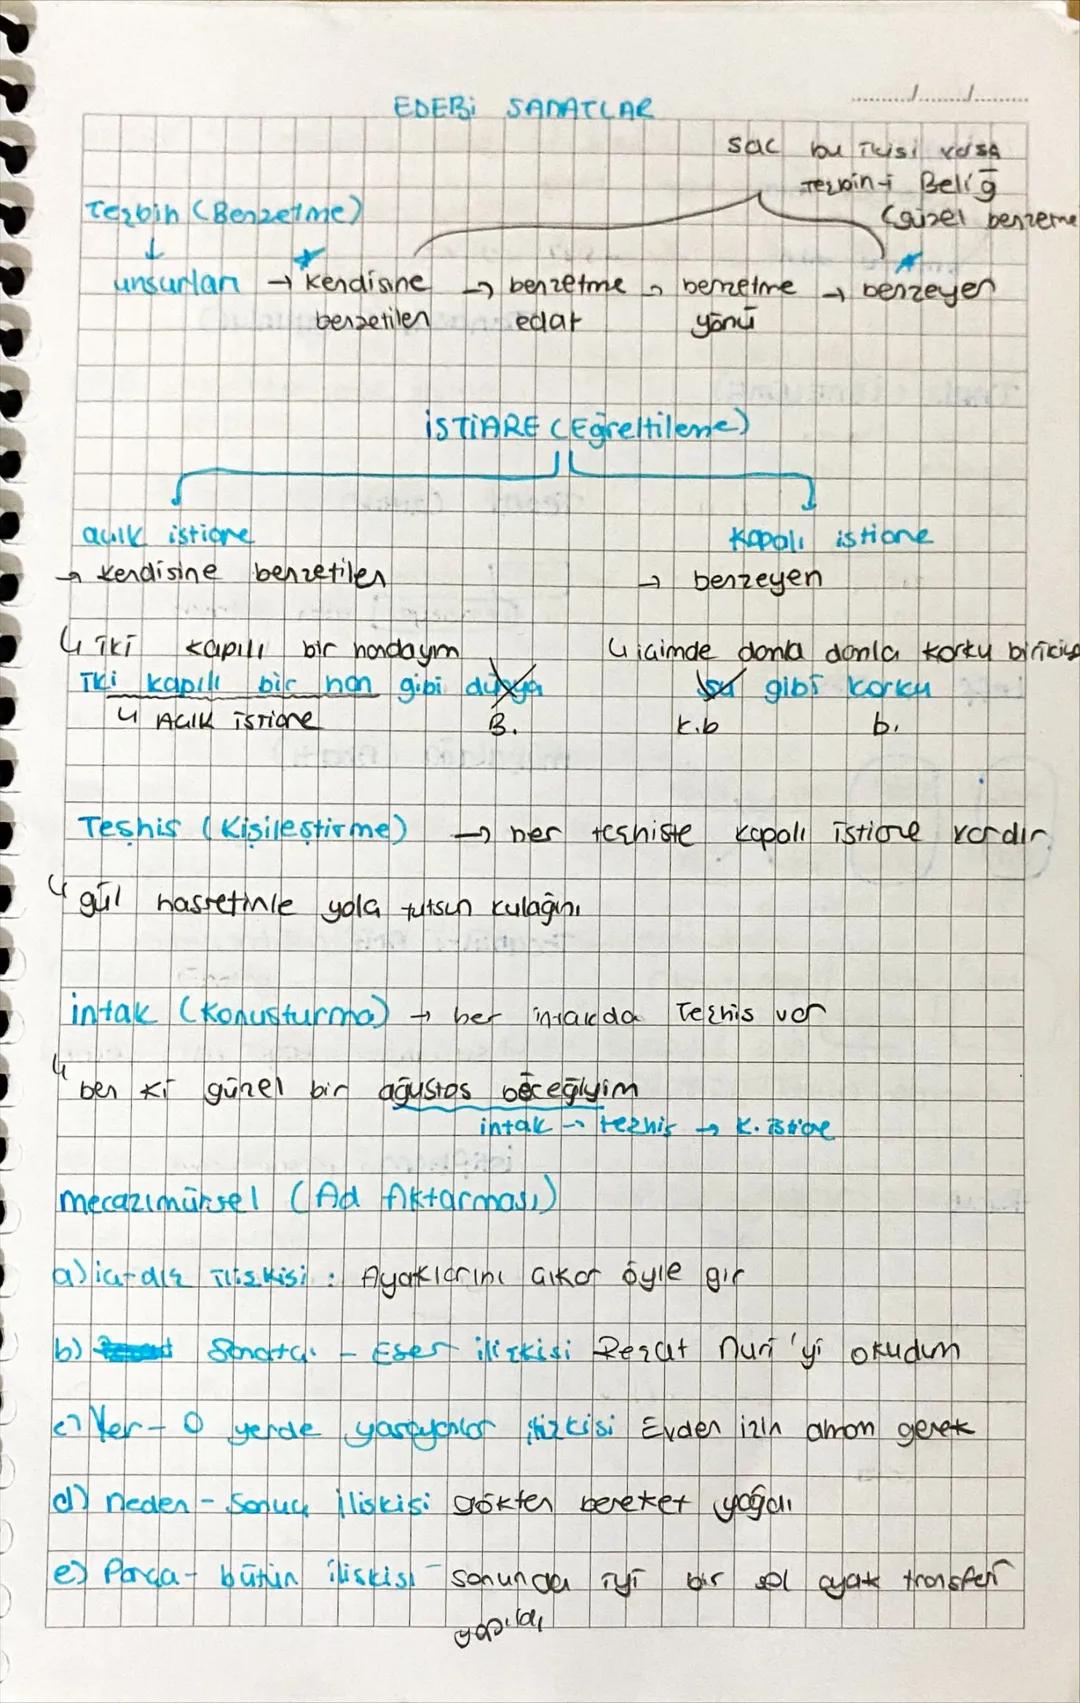 EDEBİ SANATLAR
....../....../......
sac bu ikisi varsa
Teşbih-i Beliğ
(güzel benzeme
Teşbih (Benzetme)
↓
unsurları → kendisine → benzetme → benzetme → benzeyen
benzetilen edat yönü
İSTİARE (Eğreltileme)
açık istiare kapalı istiare
→ kendisine benzetilen → benzeyen
↳ iki kapılı bir handayım ↳ içimde damla damla korku birikiyo
iki kapılı bir han gibi dünya su gibi korku
↳ Açık istiare B. k.b b.
Teşhis (Kişileştirme) → her teşhiste kapalı istiare vardır.
↳ gül hasretinle yola tutsun kulağını
intak (Konuşturma) → her intakda Teşhis var
↳ ben ki güzel bir ağustos böceğiyim
intak → teşhis → k. istiare
mecazımürsel (Ad Aktarması)
a) iç-dış ilişkisi : Ayaklarını çıkar öyle gir
b) Sanatçı - Eser ilişkisi Reşat Nuri'yi okudum
c) Yer - O yerde yaşayanlar ilişkisi Evden izin almam gerek
d) neden - sonuç ilişkisi gökten bereket yağdı
e) Parça - bütün ilişkisi - sonunda iyi bir sol ayak transferi
yapıldı